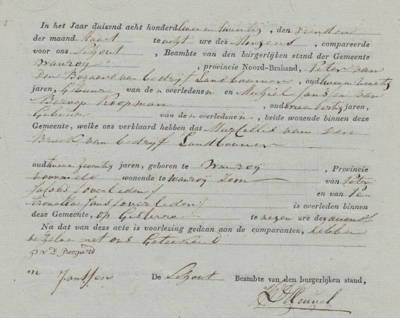 In het Jaar duizend acht honderd twee en twintig, den
der maand Maart te acht ure des Morgens, compareerde
voor ons Schout, Beambte van den burgerlijken stand der Gemeente
Wanroij, provincie Noord-Braband, Peter van
den Bogaard van bedrijf Landbouwer, oud
jaren, Gebuur van den overledenen, en Michiel Janssen van
Beroep Koopman, oud jaren,
Gebuur van den overledenen, beide wonende binnen deze
Gemeente, welke ons verklaard hebben dat Marcellis van den
Broek van bedrijf Landbouwer
oud twee zeventig jaren, geboren te Wanroij, Provincie
voormeld wonende te Wanroij Zoon van Peter
Jacobs (overleden) en van Pe
tronella Jans (overleden) is overleden binnen
deze Gemeente, op Gisteren te negen ure des avonds
En na dat deze acte is voorlezing gedaan aan de comparanten, hebben
dezelve met ons Geteekend
P v D Bogaard
M Janssen De Schout Beambte van den burgerlijken stand,